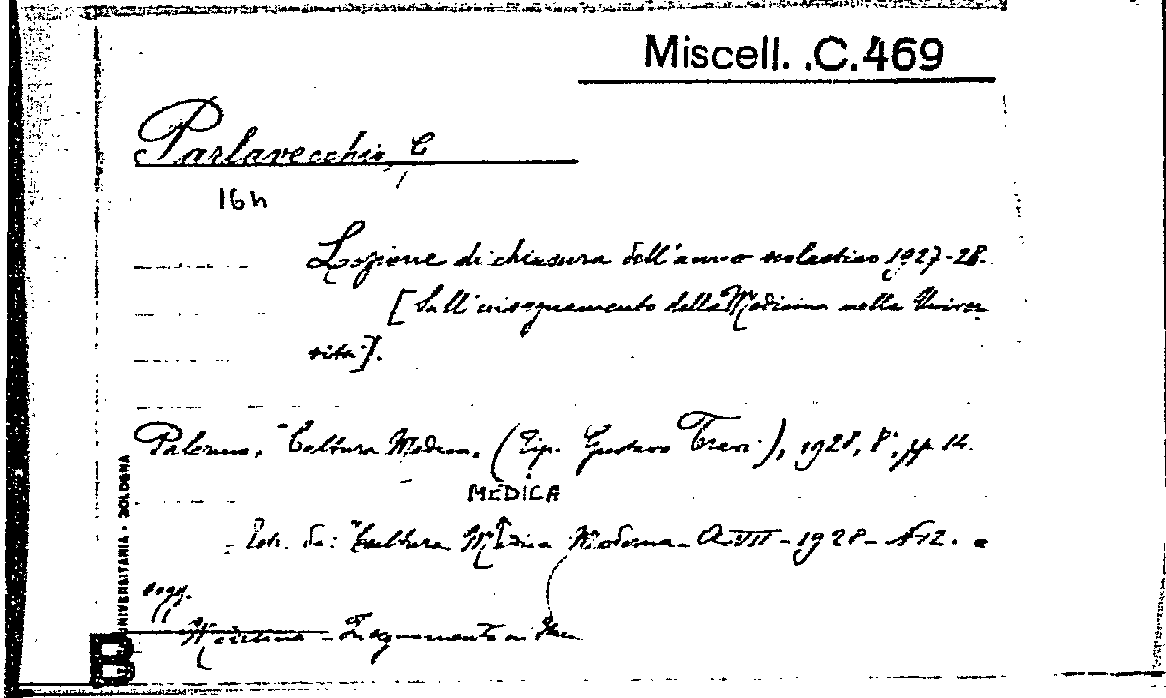 Miscell. .C.469
Parlavecchio, G
16h
Lezione di chiusura dell'anno scolastico 1927-28.
[Sull'insegnamento della Medicina nella Univer
sità].
Palermo, "Cultura Modern, (Tip. Gustavo Trevi), 1928, 8°, pp. 14.
MEDICA
- Estr. da: "Cultura Medica Moderna - A. VII - 1928 - N. 12. e
segg.
Medicina - Insegnamento
UNIVERSITARIA - BOLOGNA
B